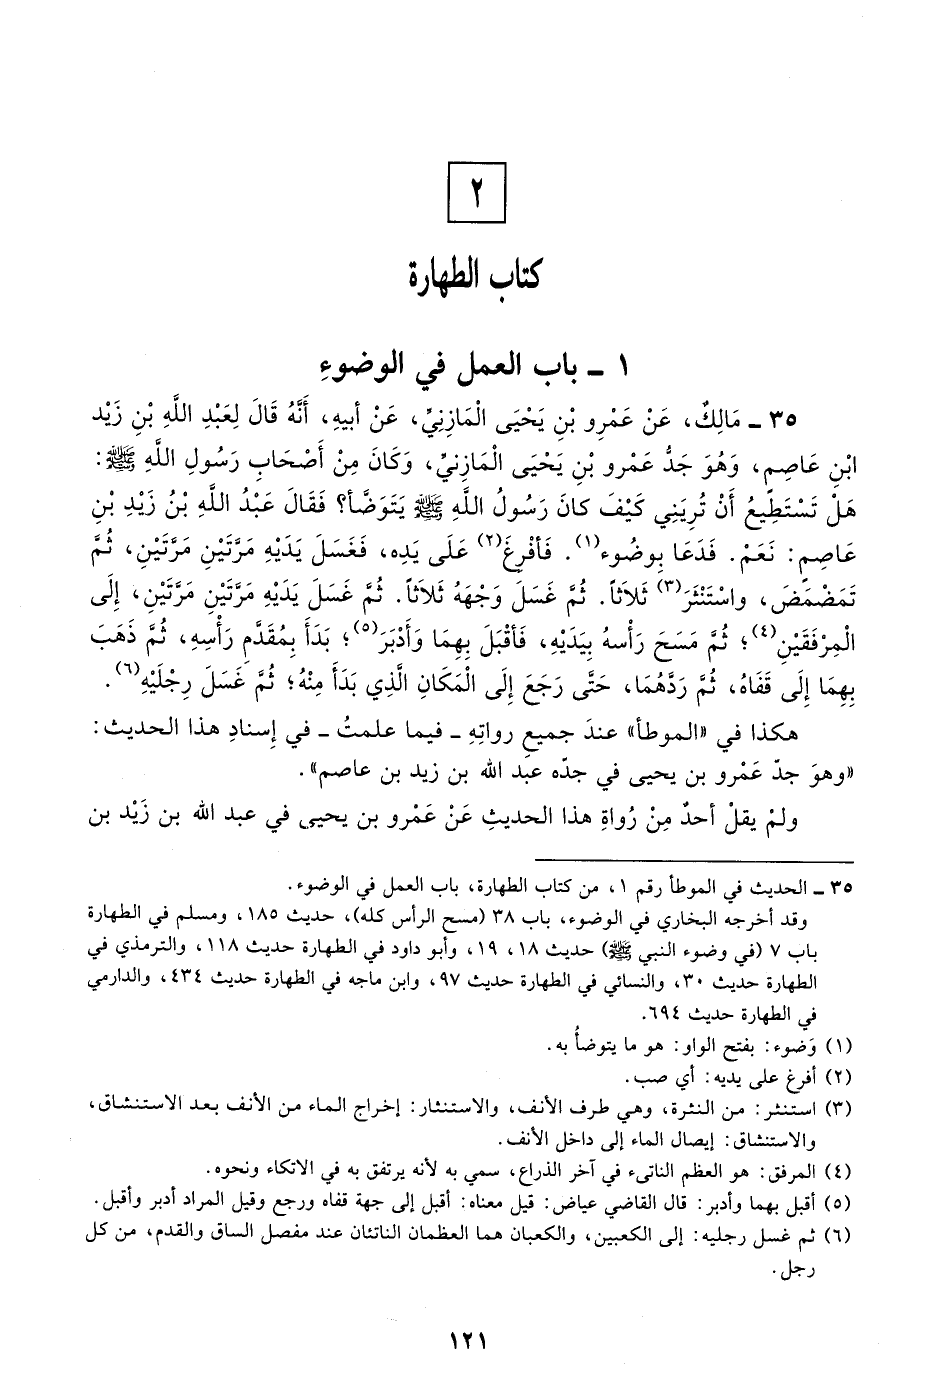 ٢
كتاب الطهارة
١ ـ باب العمل في الوضوءِ
٣٥ ـ مَالِكٌ، عَنْ عَمْرِو بْنِ يَحْيَى الْمَازِنِيِّ، عَنْ أَبيهِ، أَنَّهُ قَالَ لِعَبْدِ اللَّهِ بْنِ زَيْد
ابْنِ عَاصِمٍ، وَهُوَ جَدُّ عَمْرِو بْنِ يَحْيَى الْمَازِنيِّ، وَكَانَ مِنْ أَصْحَابِ رَسُولِ اللَّهِ ﷺ:
هَلْ تَسْتَطِيعُ أَنْ تُرِيَنِي كَيْفَ كانَ رَسُولُ اللَّهِ ﷺ يَتَوَضَّأ؟ فَقَالَ عَبْدُ اللَّهِ بْنُ زَيْدِ بْنِ
عَاصِمٍ: نَعَمْ. فَدَعَا بِوضُوء(١). فَأفْرِغَ(٢) عَلَى يَدِهِ، فَغَسَلَ يَدَيْهِ مَرَّتَيْنِ مَرَّتَيْنِ، ثُمَّ
تَمَضْمَضَ، واسْتَنْثَرَ(٣) ثَلاَثاً. ثُمَّ غَسَلَ وَجْهَهُ ثَلاَثاً. ثُمَّ غَسَلَ يَدَيْهِ مَرَّتَيْنِ مَرَّتَيْنِ، إِلَى
الْمِرْفَقَيْنِ(٤)؛ ثُمَّ مَسَحَ رَأْسهُ بِيَدَيْهِ، فَأَقْبَلَ بِهِمَا وَأَدْبَرَ(٥)؛ بَدَأَ بِمُقَدَّمِ رَأْسِهِ، ثُمَّ ذَهَبَ
بِهِمَا إِلَى قَفَاهُ، ثُمَّ رَدَّهُمَا، حَتَّى رَجَعَ إِلَى الْمَكَانِ الَّذِي بَدَأَ مِنْهُ؛ ثُمَّ غَسَلَ رِجْلَيْهِ(٦).
هكذا في «الموطأ» عندَ جميعِ رواتِهِ ـ فيما علمتُ ـ في إِسنادِ هذا الحديث:
«وهوَ جدّ عَمْرو بن يحيى في جدّه عبد الله بن زيد بن عاصم».
ولمْ يقلْ أحدٌ مِنْ رُواةِ هذا الحديثِ عَنْ عَمْرو بن يحيى في عبد الله بن زَيْد بن
٣٥ ـ الحديث في الموطأ رقم ١، من كتاب الطهارة، باب العمل في الوضوء.
وقد أخرجه البخاري في الوضوء، باب ٣٨ (مسح الرأس كله)، حديث ١٨٥، ومسلم في الطهارة
باب ٧ (في وضوء النبي ﷺ) حديث ١٨، ١٩، وأبو داود في الطهارة حديث ١١٨، والترمذي في
الطهارة حديث ٣٠، والنسائي في الطهارة حديث ٩٧، وابن ماجه في الطهارة حديث ٤٣٤، والدارمي
في الطهارة حديث ٦٩٤.
(١) وَضوء: بفتح الواو: هو ما يتوضأُ به.
(٢) أفرغ على يديه: أي صب.
(٣) استنثر: من النثرة، وهي طرف الأنف، والاستنثار: إخراج الماء من الأنف بعد الاستنشاق،
والاستنشاق: إيصال الماء إلى داخل الأنف.
(٤) المرفق: هو العظم الناتىء في آخر الذراع، سمي به لأنه يرتفق به في الاتكاء ونحوه.
(٥) أقبل بهما وأدبر: قال القاضي عياض: قيل معناه: أقبل إلى جهة قفاه ورجع وقيل المراد أدبر وأقبل.
(٦) ثم غسل رجليه: إلى الكعبين، والكعبان هما العظمان الناتئان عند مفصل الساق والقدم، من كل
رجل.
١٢١